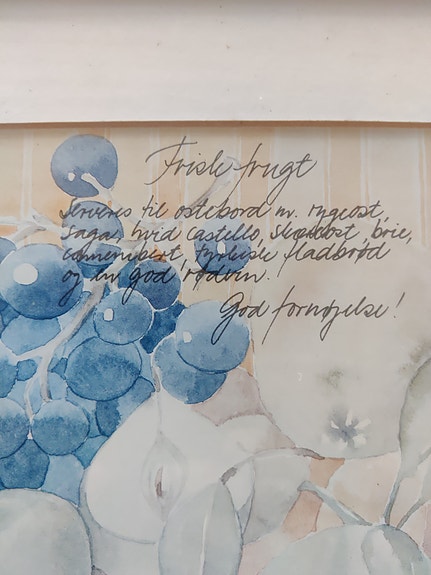 Frisk frugt
Serveres til ostebord m. rygeost,
saga, hvid castello, skæreost, brie,
camembert, tyrkisk fladbrød
og en god rødvin.
God fornøjelse!